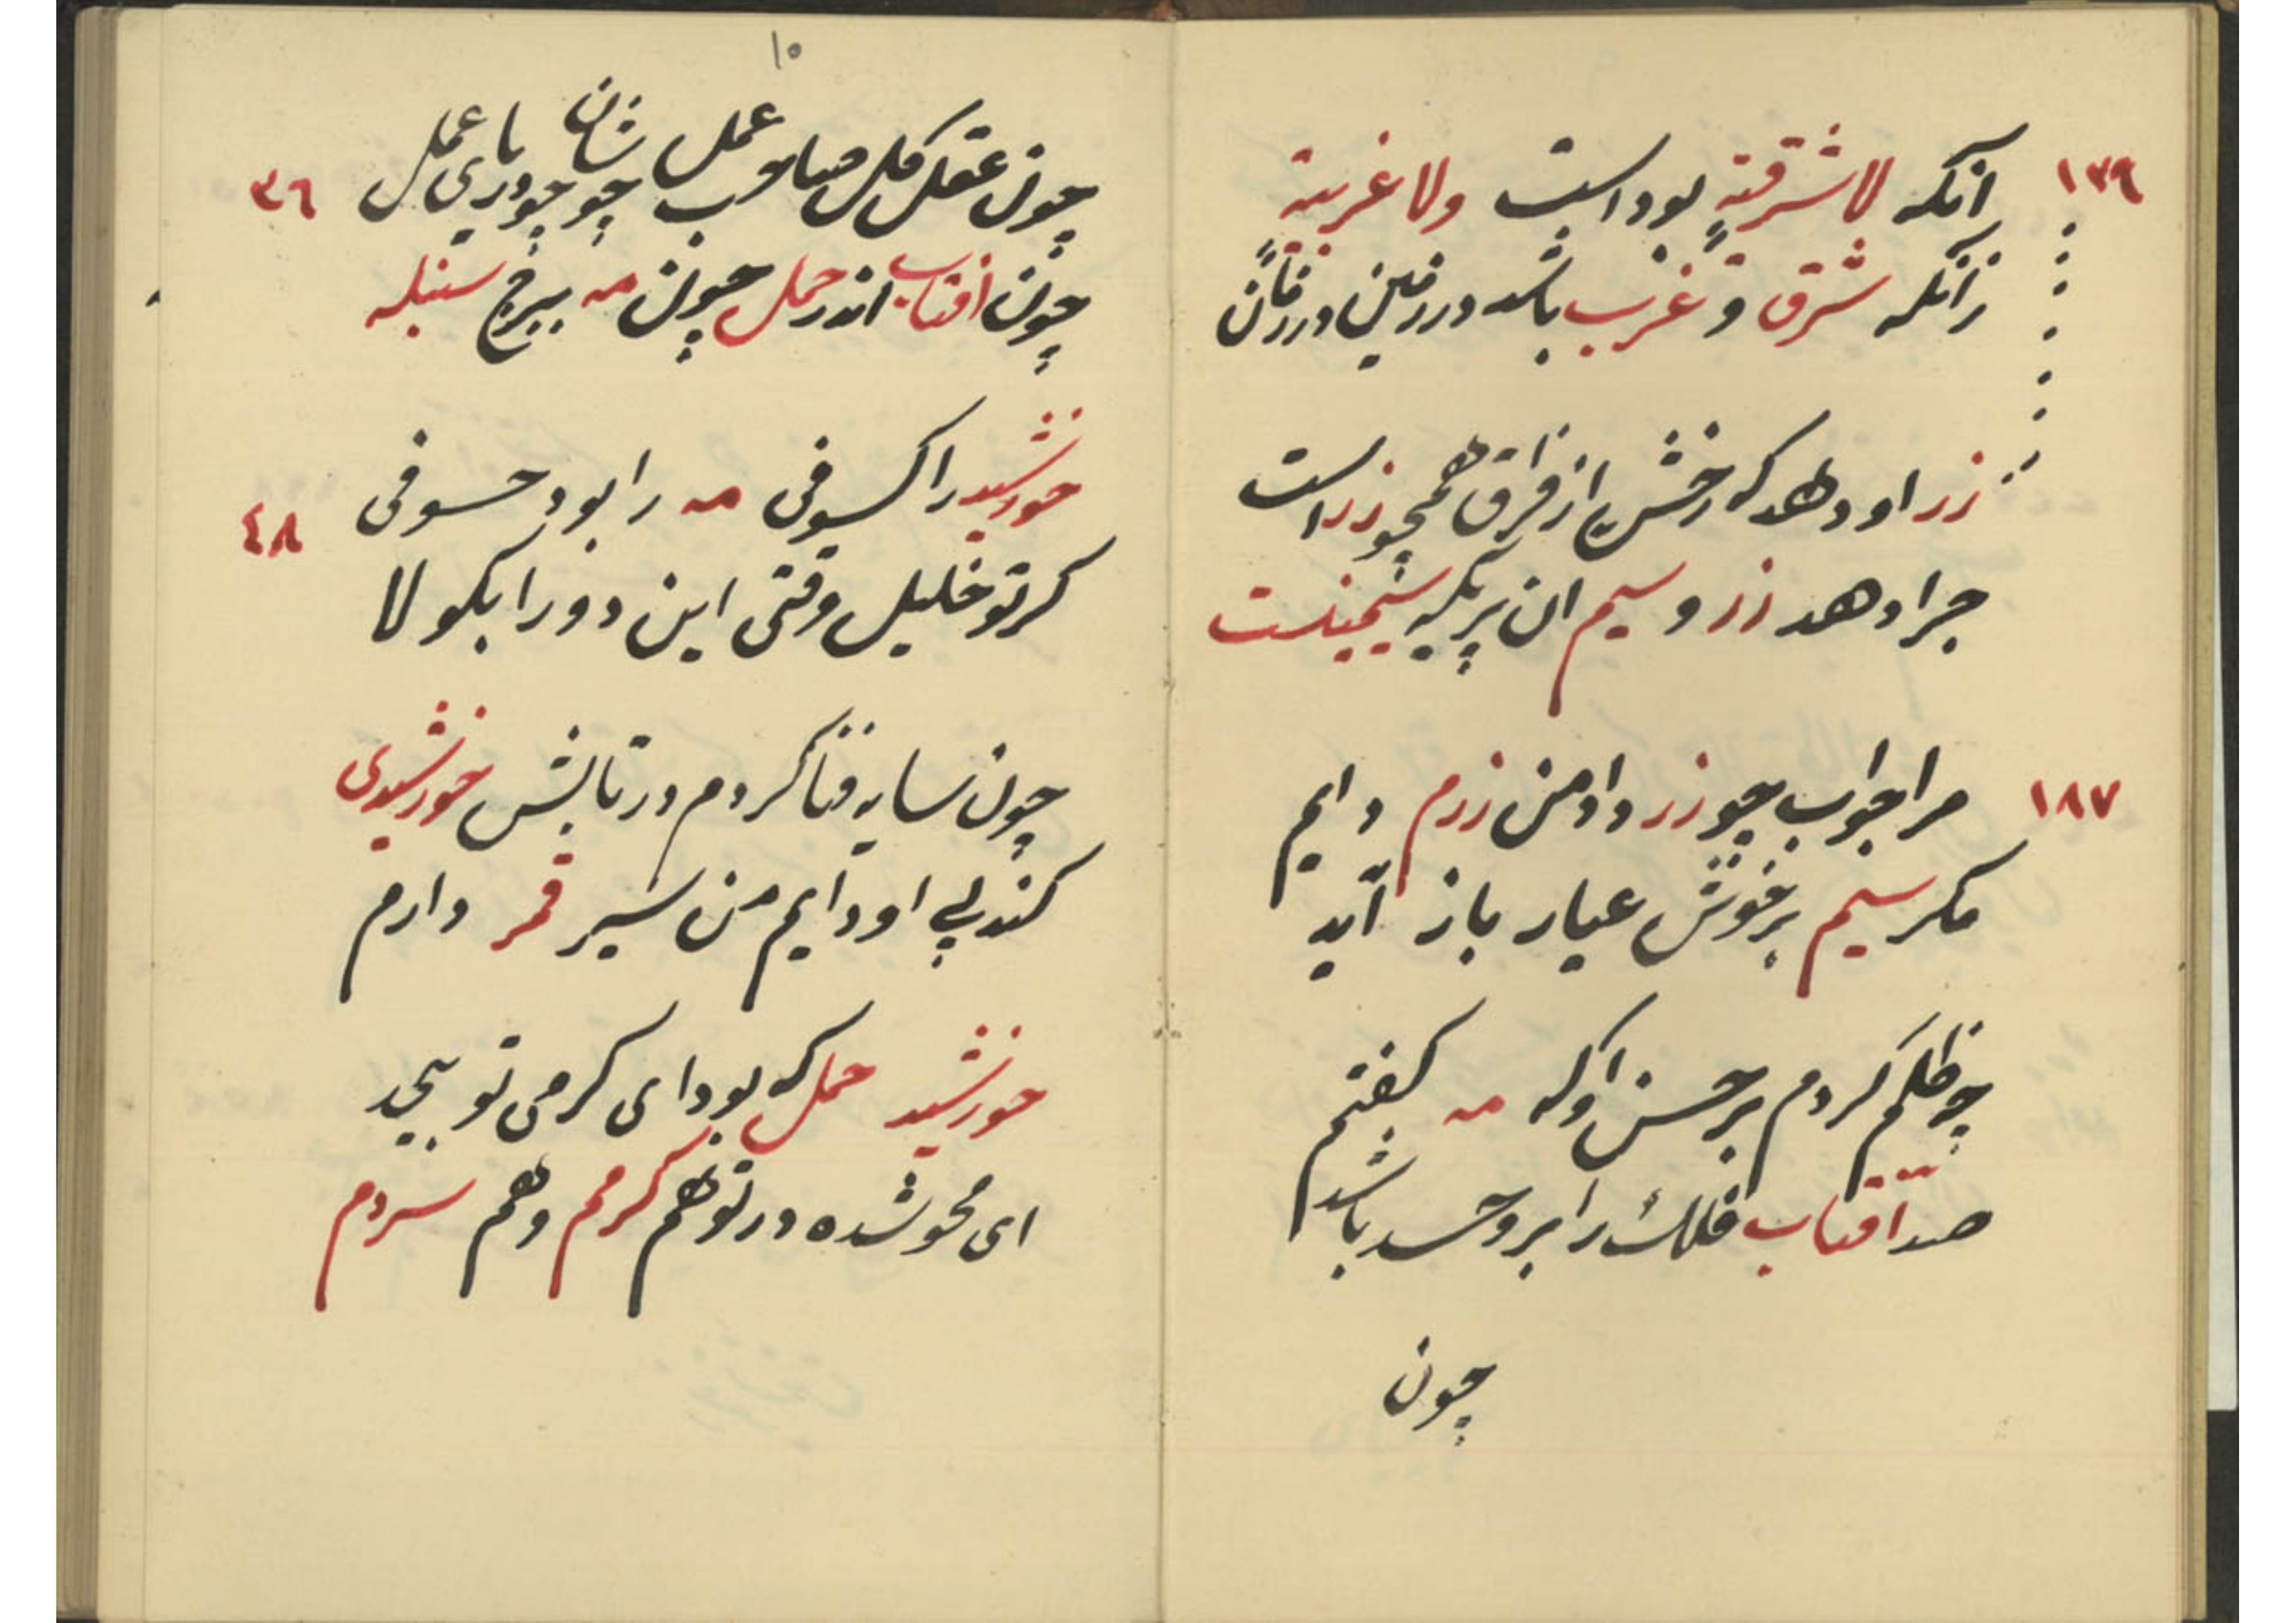 ۱۳۹
آنکه لا شرقیةٍ بود است ولا غربیة
زآنکه شرق و غرب باشد در زمین و در زمان
زر او دهد که رخش از فراق همچو زر است
چرا دهد زر و سیم آن پری که سیمینست
۱۸۷
مرا جواب چو زر داد من زرم دایم
مکر سیم برخوش عیار باز آید
چو ظلم کردم بر حسن او که مه کفتم
صد آفتاب فلک را برو حسد باشد
چون
۱۰
چون عقل کل صاحب عمل چو دریای عمل
۳٦
چون آفتاب اندر حمل چون مه ببرج سنبله
خورشید را کسوفی مه را بود خسوفی
٤٨
کر تو خلیل وقتی این دو را بکو لا
چون سایه فنا کردم در تابش خورشیدی
کند پی او دایم من سیر قمر دارم
خورشید حمل که بود ای کرمی تو بیحد
ای محو شده در تو هم کرمم و هم سردم